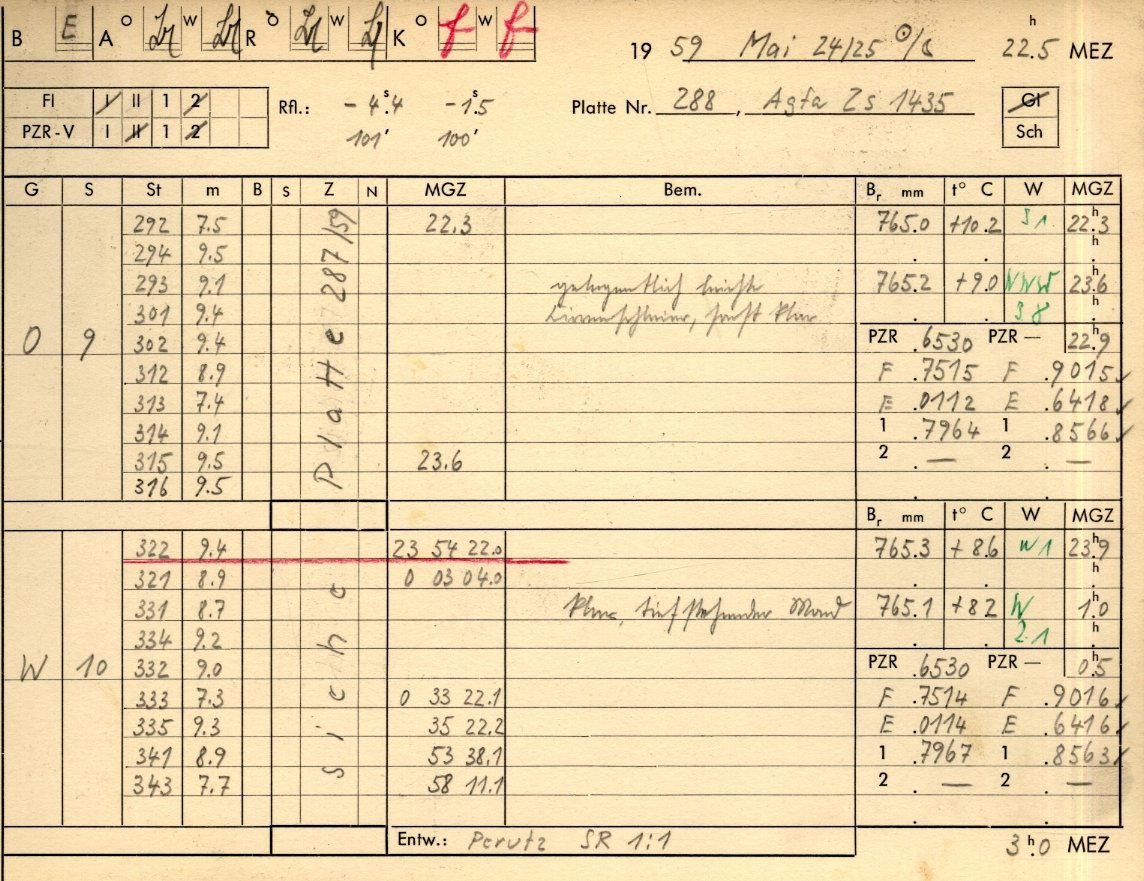 B E A O W R O W K O f W f
19 59 Mai 24/25 h 22.5 MEZ
Fl I II 1 2 Rfl.: - 4ˢ.4 - 1ˢ.5 Platte Nr. 288, Agfa Zs 1435 Gl
PZR-V I II 1 2 101' 100' Sch
G S St m B S Z N MGZ Bem. Br mm t° C W MGZ
292 7.5 22.3 765.0 +10.2 S 1 22ʰ.3
294 9.5 h
293 9.1 gelegentlich leichte 765.2 +9.0 NNW 23ʰ.6
301 9.4 Cirrenschleier, sonst klar h
O 9 302 9.4 PZR .6530 PZR — 22ʰ.9
312 8.9 F .7515 F .9015
313 7.4 E .0112 E .6418
314 9.1 1 .7964 1 .8566
315 9.5 23.6 2 — 2 —
316 9.5
siehe Platte 287/59
Br mm t° C W MGZ
322 9.4 23 54 22.0 765.3 + 8.6 W 1 23ʰ.9
321 8.9 0 03 04.0 h
331 8.7 klar, tiefstehender Mond 765.1 +8.2 W 1ʰ.0
334 9.2 2.1 h
W 10 332 9.0 PZR .6530 PZR — 0ʰ.5
333 7.3 0 33 22.1 F .7514 F .9016
335 9.3 35 22.2 E .0114 E .6416
341 8.9 53 38.1 1 .7967 1 .8563
343 7.7 58 11.1 2 — 2 —
Entw.: Perutz SR 1:1 3ʰ.0 MEZ